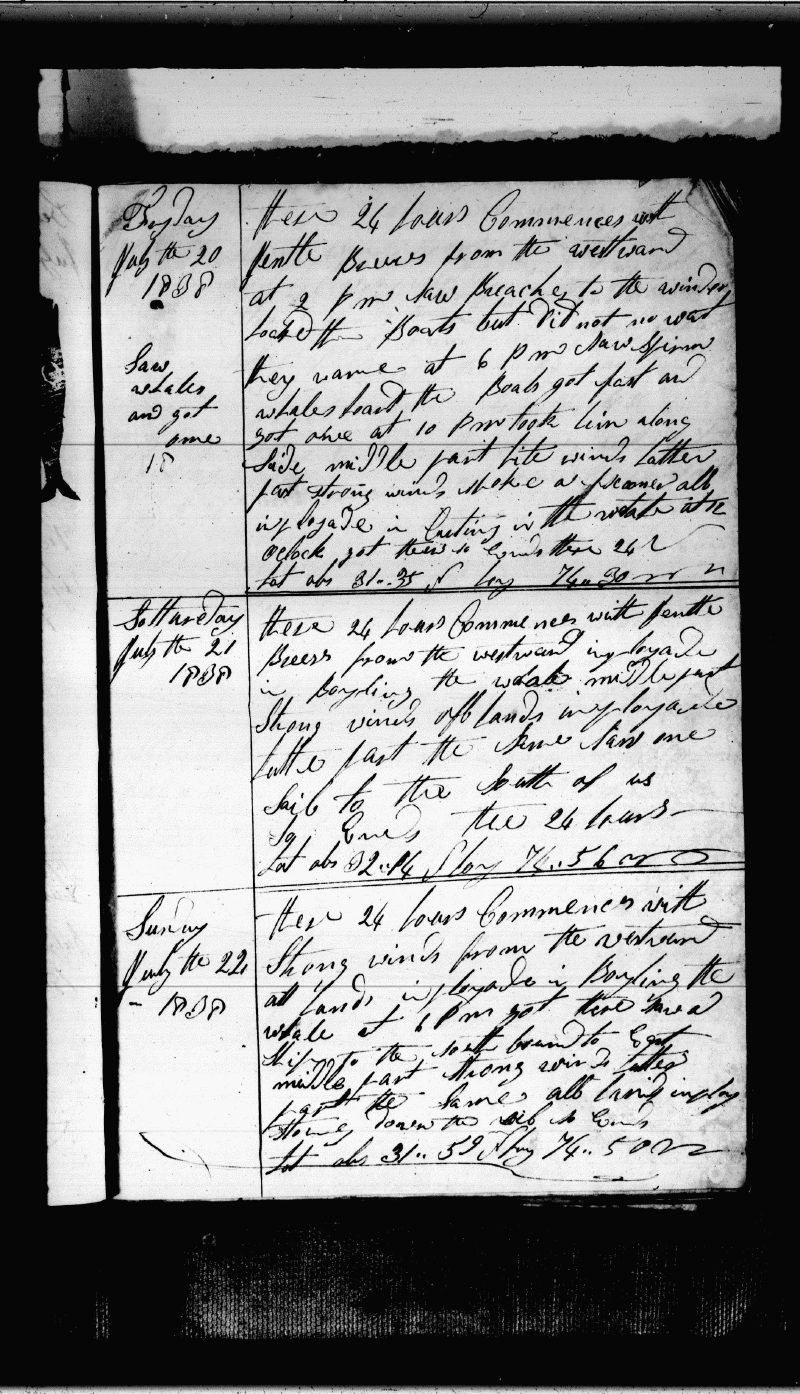 Fryday
July the 20
1838
Saw
whales
and got
one
18
these 24 hours Commences with
gentle Breeses from the westward
at 2 p m saw Breaches to the windard
the Boats but did not no wat
they ware at 6 P m saw Sperm
whales the Boats got fast and
got one at 10 P m took him along
side middle part lite winds latter
part strong winds all
imployade in Cutting in the whale at 12
oclock got threw so Ends these 24 h
Lat obs 31..35 N long 74..30
Satturday
July the 21
1838
these 24 hours Commences with gentle
Breess from the westward imployade
in Boyling the whale middle part
Strong winds all hands imployade
latter part the same saw one
Sail to the South of us
So Ends thee 24 hours
Lat obs 32..14 N long 74..56
Sunday
July the 22
1838
these 24 hours Commences with
Strong winds from the westward
all hands imployade in Boyling the
whale at 6 P m got threw saw a
Ship to the south bound to East
middle part strong winds latter
part the same all hands imploy
down the so Ends
Lat obs 31..59 N long 74..50